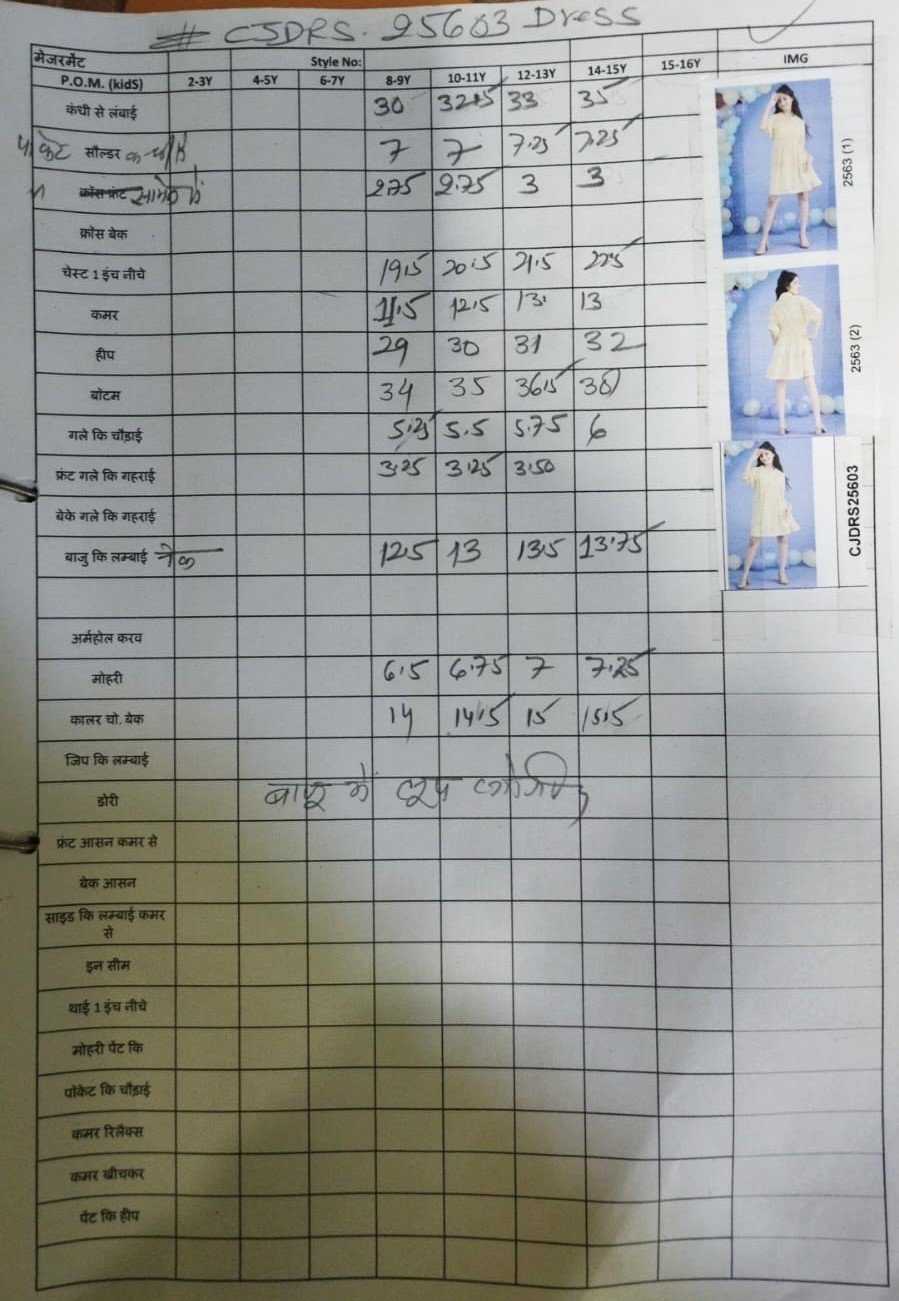 # CJDRS. 25603 Dress
मेजरमेंट Style No: IMG
P.O.M. (kidS) 2-3Y 4-5Y 6-7Y 8-9Y 10-11Y 12-13Y 14-15Y 15-16Y
कंधी से लंबाई 30 32.5 33 35
सौल्डर 7 7 7.25 7.25
क्रॉस फ्रंट सामने से 2.75 2.75 3 3
क्रोस बेक
चेस्ट 1 इंच नीचे 19.5 20.5 21.5 22.5
कमर 11.5 12.5 13. 13
हीप 29 30 31 32
बॉटम 34 35 36.5 38
गले कि चौड़ाई 5.25 5.5 5.75 6
फ्रंट गले कि गहराई 3.25 3.25 3.50
बेके गले कि गहराई
बाजु कि लम्बाई नेक 12.5 13 13.5 13.75
अर्महोल करव
मोहरी 6.5 6.75 7 7.25
कालर चो. बेक 14 14.5 15 15.5
जिप कि लम्बाई
डोरी
फ्रंट आसन कमर से
बेक आसन
साइड कि लम्बाई कमर
से
इन सीम
थाई 1 इंच नीचे
मोहरी पेंट कि
पॉकेट कि चौड़ाई
कमर रिलैक्स
कमर खीचकर
पेंट कि हीप
2563 (1)
2563 (2)
CJDRS25603